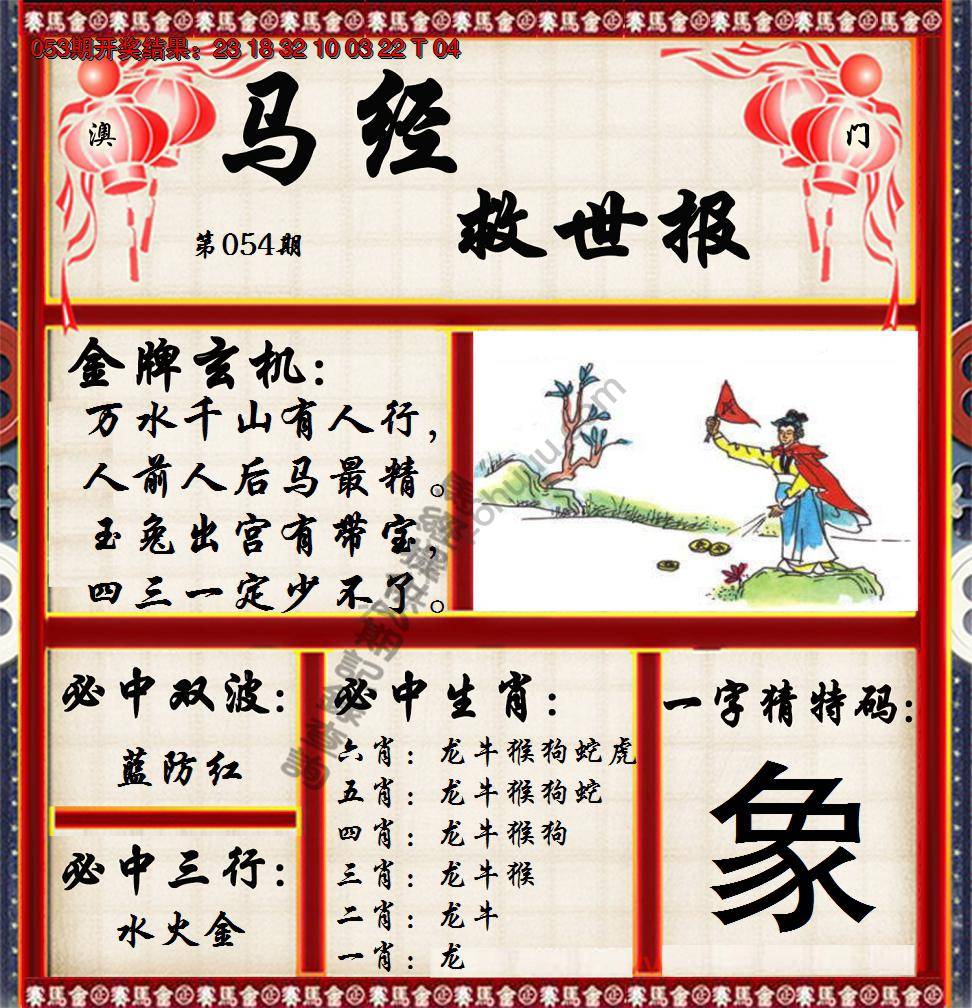 053期开奖结果：23 18 32 10 03 22 T 04
澳 门
马经
救世报
第054期
金牌玄机：
万水千山有人行，
人前人后马最精。
玉兔出宫有带宝，
四三一定少不了。
必中双波：
蓝防红
必中三行：
水火金
必中生肖：
六肖：龙牛猴狗蛇虎
五肖：龙牛猴狗蛇
四肖：龙牛猴狗
三肖：龙牛猴
二肖：龙牛
一肖：龙
一字猜特码：
象